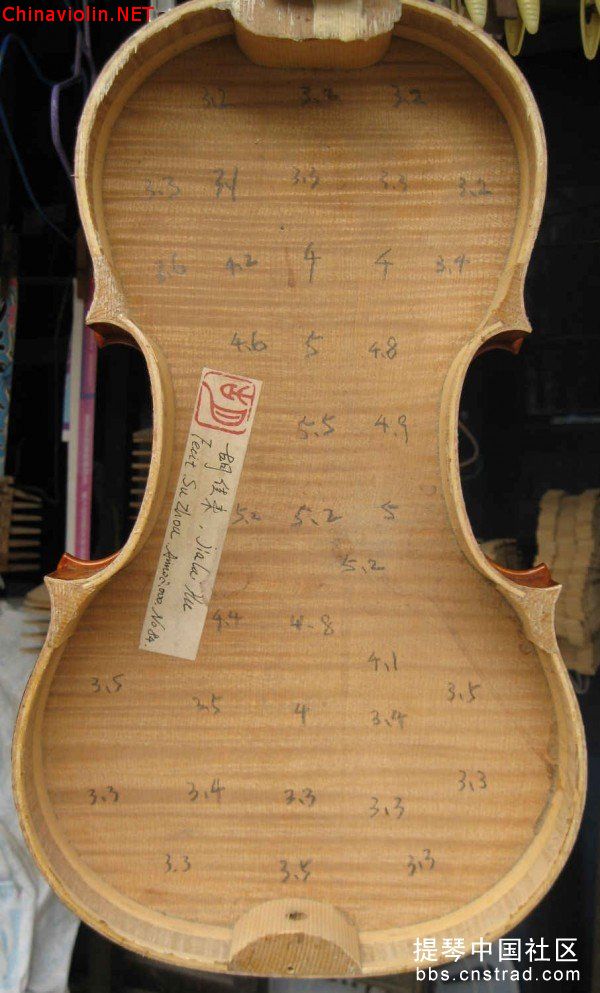 Chinaviolin.NET
3.2 3.2 3.2
3.3 3.1 3.3 3.3 3.2
3.6 4.2 4 4 3.4
4.6 5 4.8
5.5 4.9
5.2 5.2 5
5.2
4.4 4.8
4.1
3.5 3.5 4 3.4 3.5
3.3 3.4 3.3 3.3 3.3
3.3 3.5 3.3
Fecit SuZhou No 84.
提琴中国社区
bbs.cnstrad.com